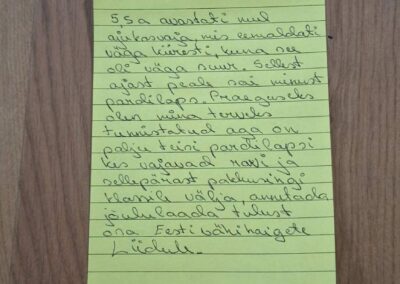 5,5a avastati mul
ajukasvaja, mis eemaldati
väga kiiresti, kuna see
oli väga suur. Sellest
ajast peale sai minust
pardilaps. Praeguseks
olen mina terveks
tunnistatud aga on
palju teisi pardilapsi
kes vajavad ravi ja
sellepärast pakkusingi
klassile välja, annetada
jõululaada tulust
osa Eesti vähihaigete
Liidule.